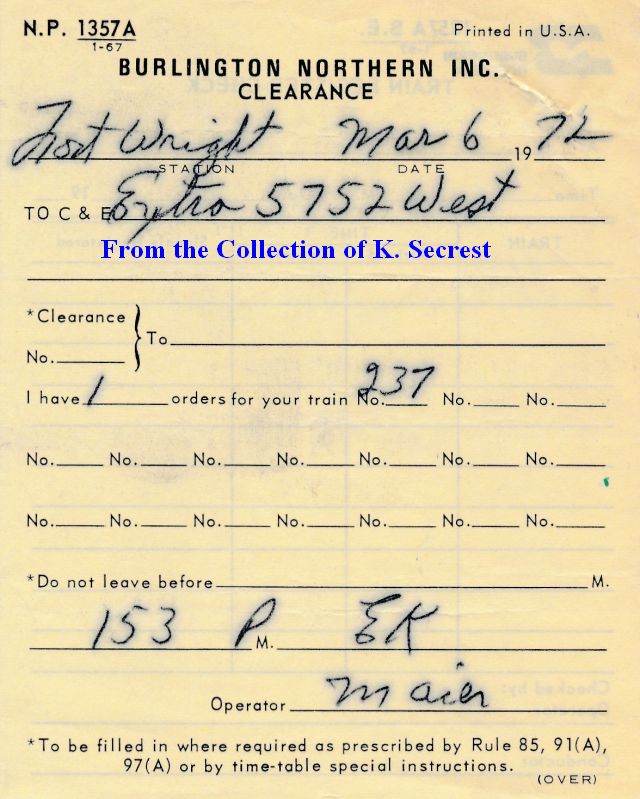 N.P. 1357A Printed in U.S.A.
1-67
BURLINGTON NORTHERN INC.
CLEARANCE
Fort Wright Mar 6 1972
STATION DATE
TO C & E Extra 5752 West
From the Collection of K. Secrest
*Clearance
No. To
I have 1 orders for your train No. 237 No. No.
No. No. No. No. No. No. No.
No. No. No. No. No. No. No.
*Do not leave before M.
153 P M. EK
Operator Maier
*To be filled in where required as prescribed by Rule 85, 91(A),
97(A) or by time-table special instructions.
(OVER)